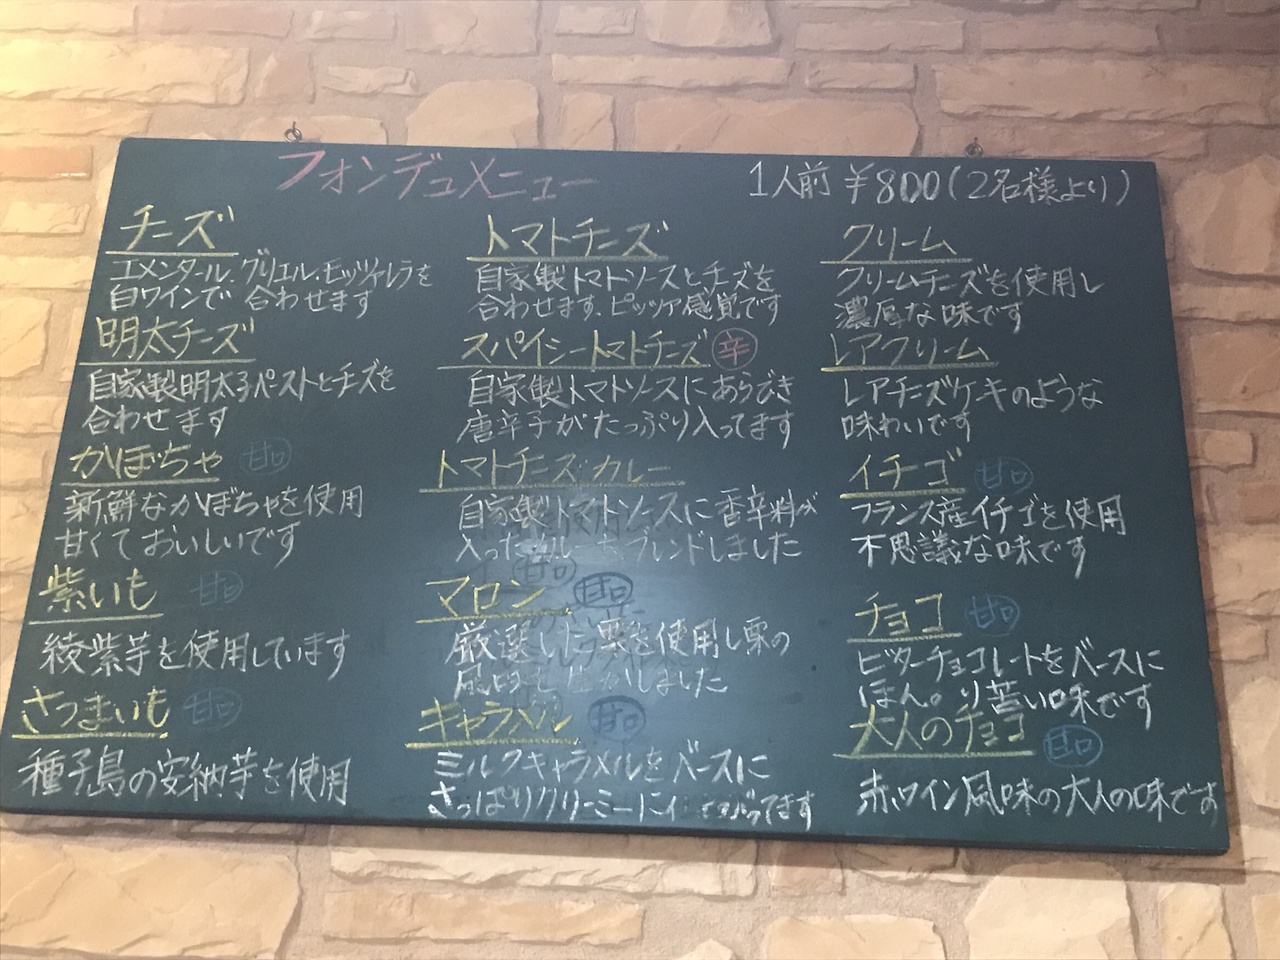 フォンデュメニュー
1人前 ¥800(2名様より)
チーズ
エメンタール、グリエル、モッツァレラを
白ワインで 合わせます
明太チーズ
自家製明太子ペーストとチーズを
合わせます
かぼちゃ 甘口
新鮮なかぼちゃを使用
甘くておいしいです
紫いも 甘口
綾紫芋を使用しています
さつまいも 甘口
種子島の安納芋を使用
トマトチーズ
自家製トマトソースとチーズを
合わせます、ピッツァ感覚です
スパイシートマトチーズ 辛
自家製トマトソースにあらびき
唐辛子がたっぷり入ってます
トマトチーズカレー
自家製トマトソースに香辛料が
入ったカレーをブレンドしました
マロン 甘口
厳選した栗を使用し栗の
風味を生かしました
キャラメル 甘口
ミルクキャラメルをベースに
さっぱりクリーミーに
クリーム
クリームチーズを使用し
濃厚な味です
レアクリーム
レアチーズケーキのような
味わいです
イチゴ 甘口
フランス産イチゴを使用
不思議な味です
チョコ 甘口
ビターチョコレートをベースに
ほんのり苦い味です
大人のチョコ 甘口
赤ワイン風味の大人の味です